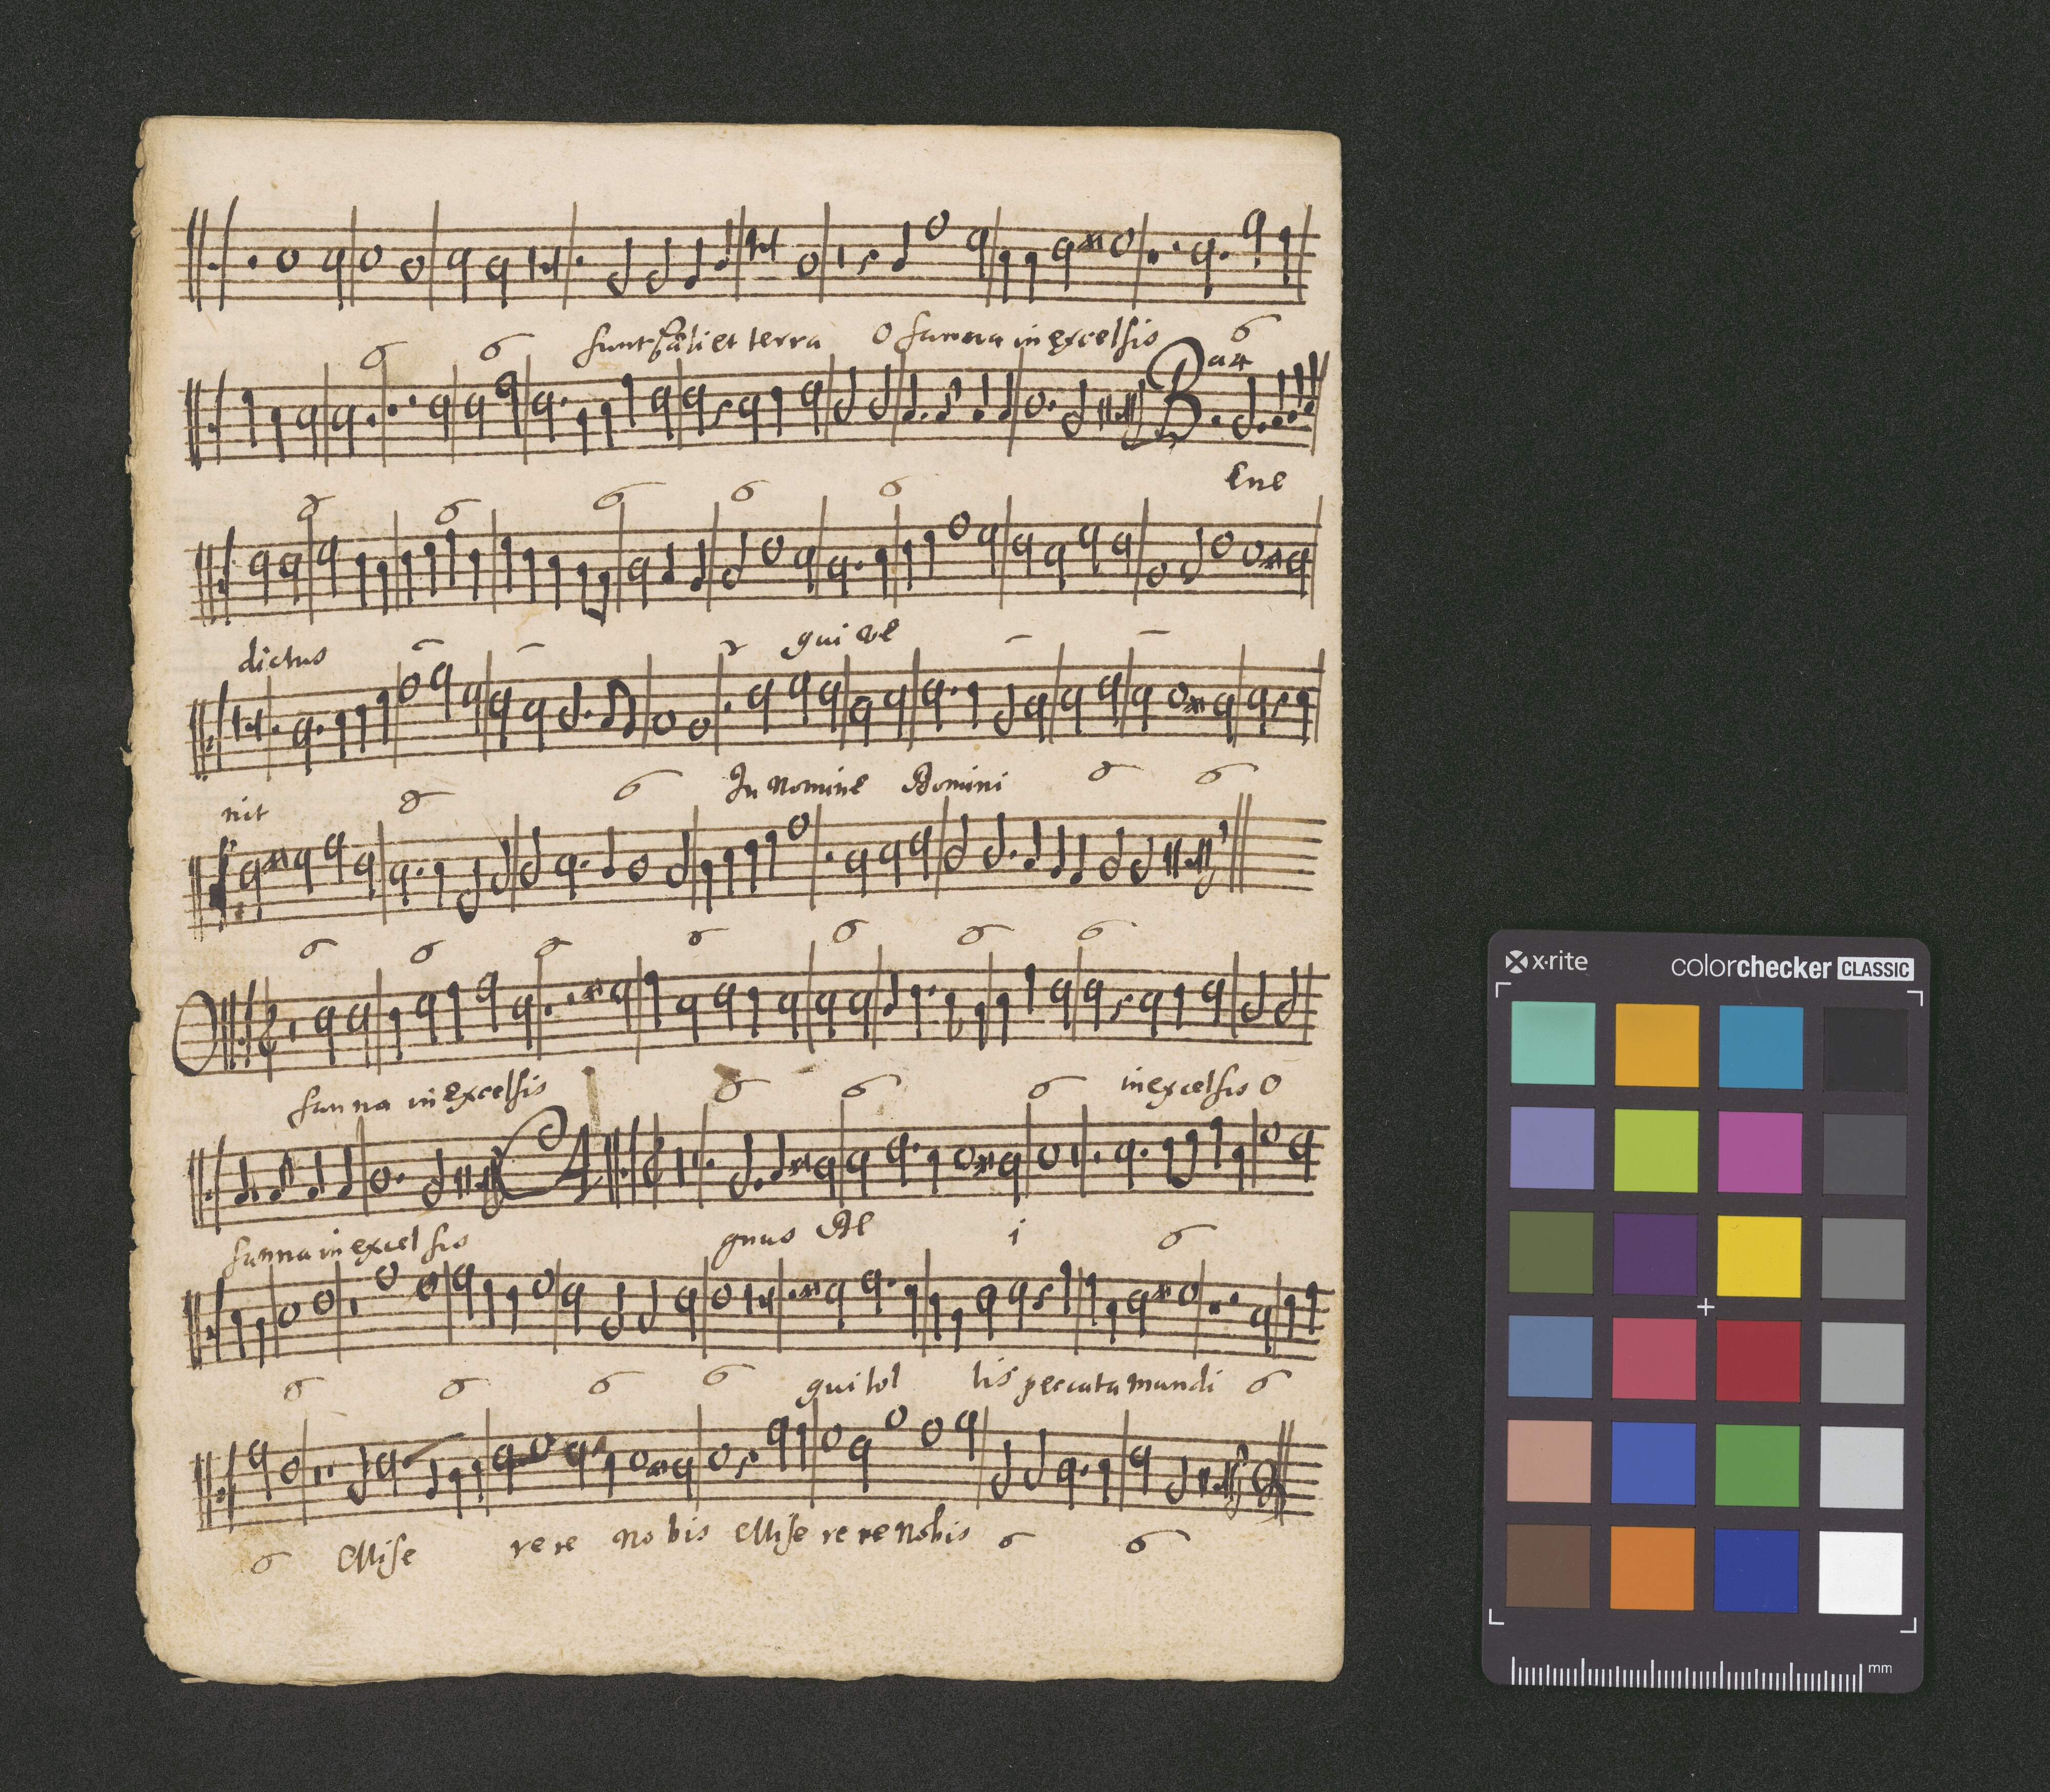 sunt Cæli et terra O sanna in excelsis
a 4
B
ene
dictus
qui ve
nit
In Nomine Domini
O
sanna in excelsis
in excelsis O
A
sanna in excelsis
gnus De i
qui tol lis peccata mundi
Mise re re No bis Mise re re Nobis
x·rite
colorchecker CLASSIC
mm